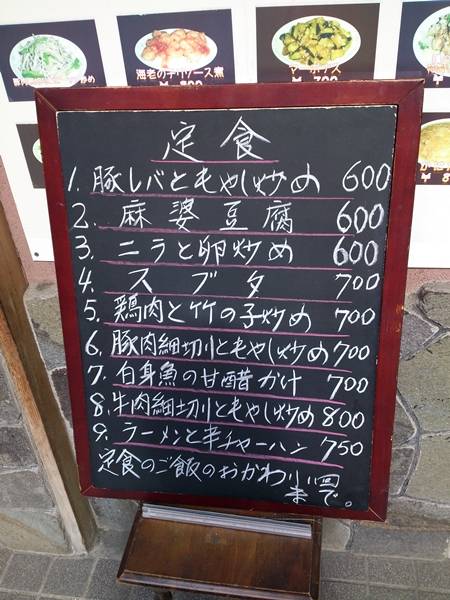 海老のチリソース煮
マーボナス
定食
1. 豚レバともやし炒め 600
2. 麻婆豆腐 600
3. ニラと卵炒め 600
4. スブタ 700
5. 鶏肉と竹の子炒め 700
6. 豚肉細切りともやし炒め 700
7. 白身魚の甘酢かけ 700
8. 牛肉細切りともやし炒め 800
9. ラーメンと半チャーハン 750
定食のご飯のおかわり1回
まで。